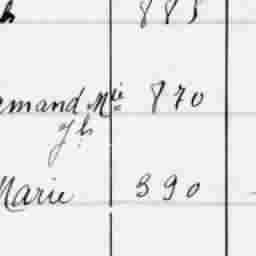 h 885
rmand Mie 870
Jh
Marie 390